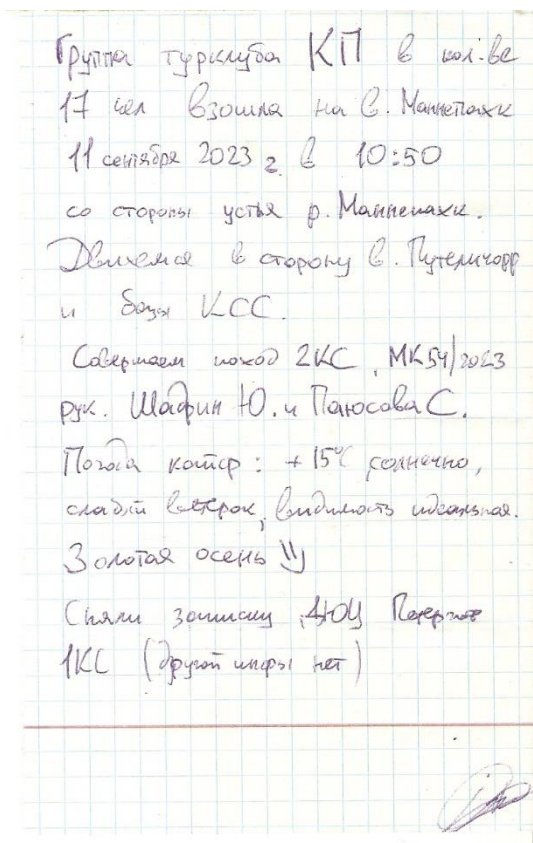 Группа турклуба КП в кол.ве
17 чел взошла на в. Маннепахк
11 сентября 2023 г. в 10:50
со стороны устья р. Маннепахк.
Движемся в сторону в. Путеличорр
и базы КСС.
Совершаем поход 2КС, МК54/2023
рук. Шадрин Ю. и Паюсова С.
Погода комф: +15°C солнечно,
слабый ветерок, видимость идеальная.
Золотая осень
Сняли записку ДЮЦ
1КС (другой инфы нет)